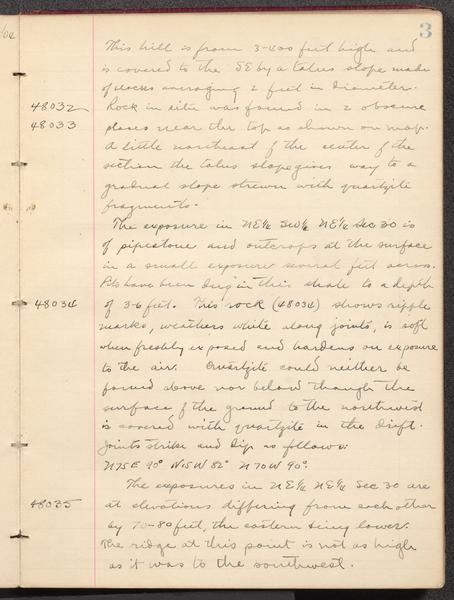 3
This hill is from 3-400 feet high and
is covered to the SE by a talus slope made
of blocks averaging 2 feet in diameter.
48032 Rock in situ was found in 2 obscure
48033 places near the top as shown on map.
A little northeast of the center of the
section the talus slope gives way to a
gradual slope strewn with quartzite
fragments.
The exposure in NE¼ SW¼ NE¼ Sec 30 is
of pipestone and outcrops at the surface
in a small exposure several feet across.
Pits have been dug in this shale to a depth
48034 of 3-6 feet. This rock (48034) shows ripple
marks, weathers white along joints, is soft
when freshly exposed and hardens on exposure
to the air. Quartzite could neither be
found above nor below though the
surface of the ground to the northwest
is covered with quartzite in the drift.
Joints strike and dip as follows:
N75E 90° N15W 82° N70W 90°.
The exposures in NE¼ NE¼ Sec 30 are
48035 at elevations differing from each other
by 70-80 feet, the eastern being lower.
The ridge at this point is not as high
as it was to the southwest.